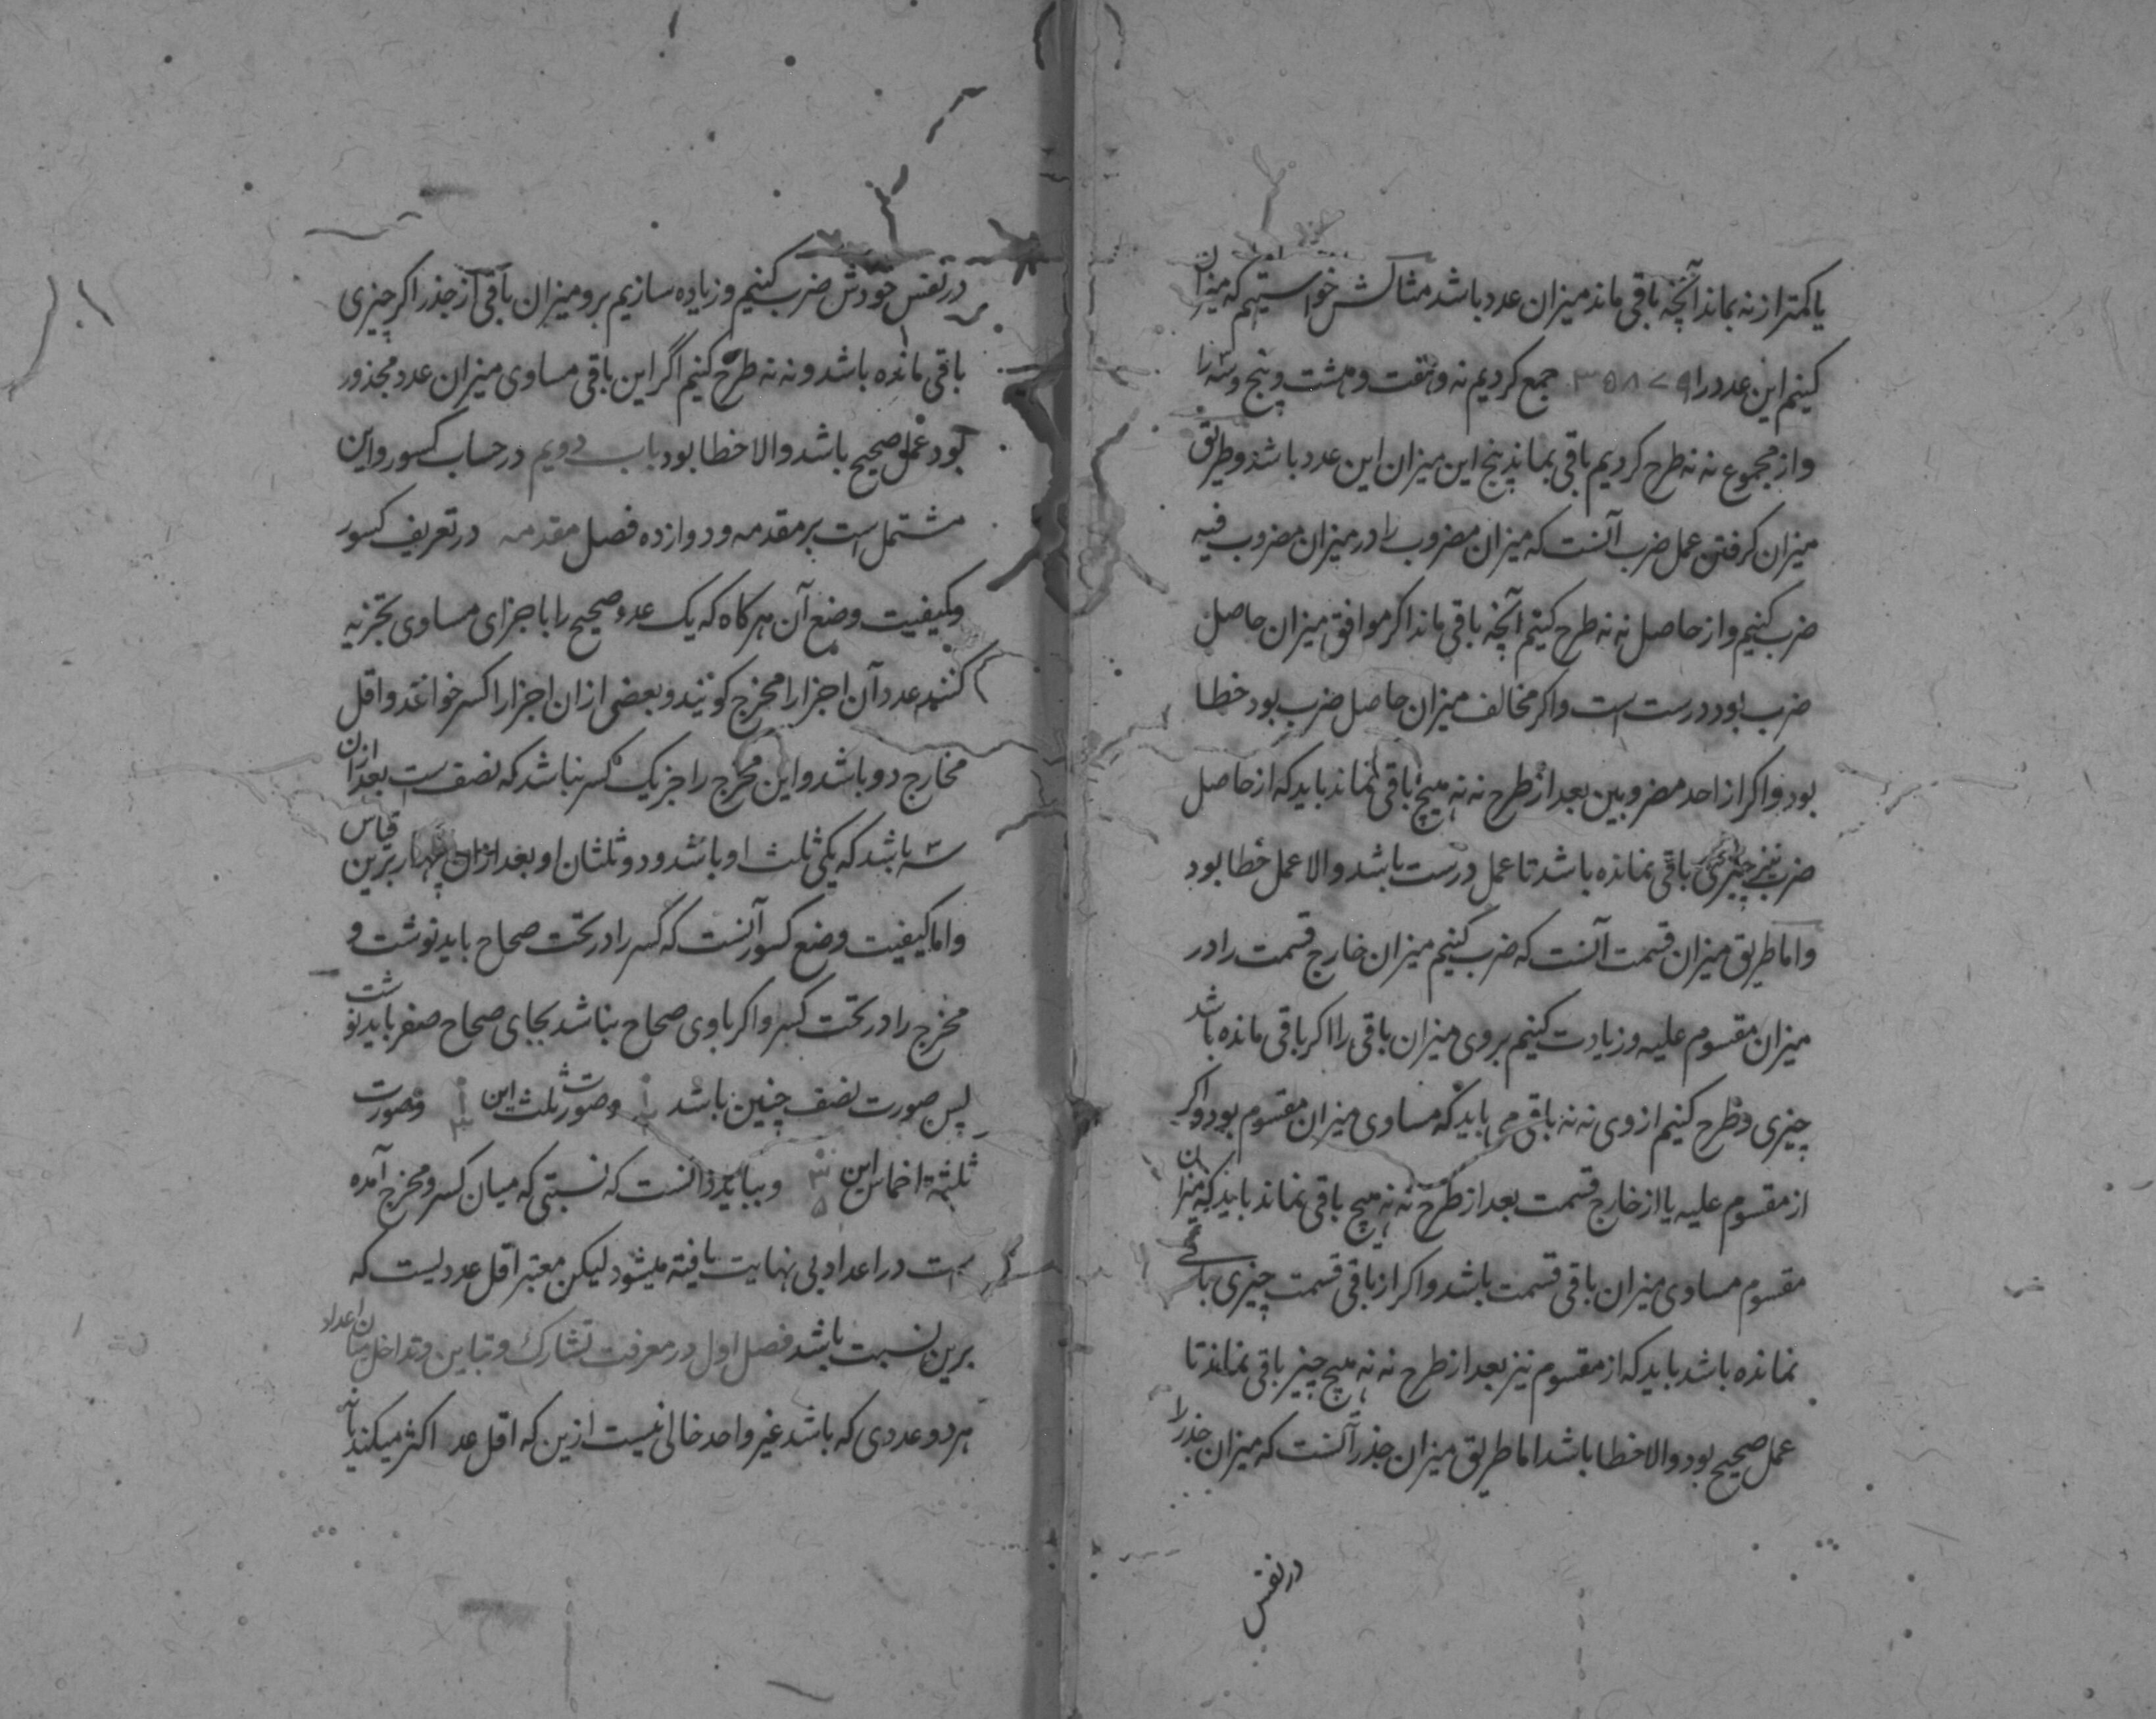 یا کمتر از نه بماند آنچه باقی ماند میزان عدد باشد مثالش خواستیم که میزان
کنیم این عدد را ۳۵۸۷۹ جمع کردیم نه و هفت و هشت و پنج و سه را
و از مجموع نه نه طرح کردیم باقی بماند پنج این میزان این عدد باشد و طریق
میزان کرفتن عمل ضرب آنست که میزان مضروب را در میزان مضروب فیه
ضرب کنیم و از حاصل نه نه طرح کنیم آنچه باقی ماند اکر موافق میزان حاصل
ضرب بود درست است و اکر مخالف میزان حاصل ضرب بود خطا
بود و اکر از احد مضروبین بعد از طرح نه نه هیچ باقی نماند باید که از حاصل
ضرب نیز چیزی باقی نمانده باشد تا عمل درست باشد والا عمل خطا بود
و اما طریق میزان قسمت آنست که ضرب کنیم میزان خارج قسمت را در
میزان مقسوم علیه و زیادت کنیم بر وی میزان باقی را اکر باقی مانده باشد
چیزی و طرح کنیم از وی نه نه باقی می باید که مساوی میزان مقسوم بود و اکر
از مقسوم علیه یا از خارج قسمت بعد از طرح نه نه هیچ باقی نماند باید که میزان
مقسوم مساوی میزان باقی قسمت باشد و اکر از باقی قسمت چیزی باقی
نمانده باشد باید که از مقسوم نیز بعد از طرح نه نه هیچ چیز باقی نماند تا
عمل صحیح بود والا خطا باشد اما طریق میزان جذر آنست که میزان جذر را
در نفس
در نفس خودش ضرب کنیم و زیاده سازیم برو میزان باقی از جذر اکر چیزی
باقی مانده باشد و نه نه طرح کنیم اگر این باقی مساوی میزان عدد مجذور
بود عمل صحیح باشد والا خطا بود باب دویم در حساب کسور و این
مشتمل است بر مقدمه و دوازده فصل مقدمه در تعریف کسور
و کیفیت وضع آن هرکاه که یک عدد صحیح را با جزای مساوی تجزیه
کنند عدد آن اجزا را مخرج کویند و بعضی از ان اجزا را کسر خوانند و اقل
مخارج دو باشد و این مخرج را جز یک کسر نباشد که نصف است بعد ازان
سه باشد که یکی ثلث او باشد و دو ثلثان او بعد ازان چهار برین قیاس
و اما کیفیت وضع کسور آنست که کسر را در تحت صحاح باید نوشت و
مخرج را در تحت کسر و اکر با وی صحاح نباشد بجای صحاح صفر باید نوشت
پس صورت نصف چنین باشد ۰ ۱ ۲ و صورت ثلث این ۰ ۱ ۳ و صورت
ثلثة اخماس این ۰ ۳ ۵ و بباید دانست که نسبتی که میان کسر و مخرج آمده
است در اعداد بی نهایت یافته میشود لیکن معتبر اقل عددیست که
برین نسبت باشد فصل اول در معرفت تشارک و تباین و تداخل میان اعداد
هر دو عددی که باشد غیر واحد خالی نیست ازین که اقل عد اکثر میکند یا